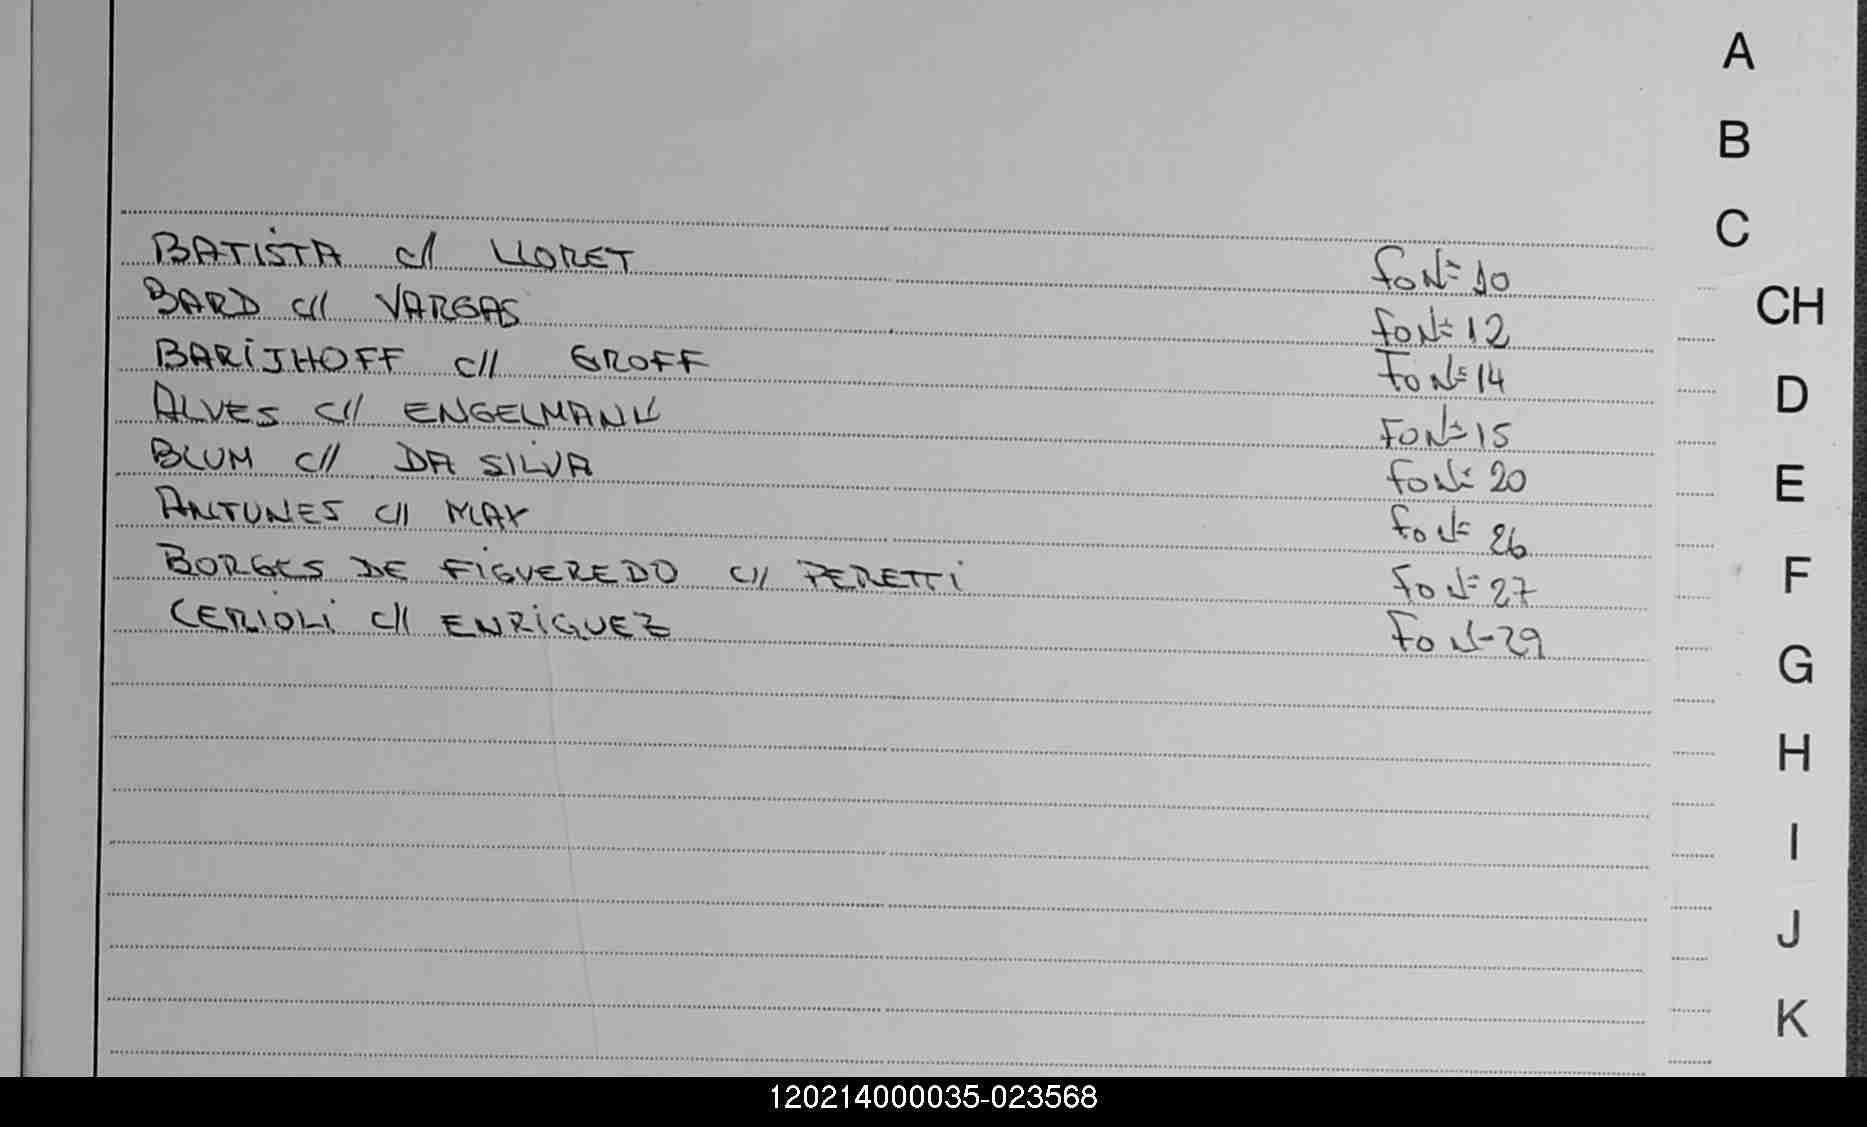 A
B
C
BATISTA c// LLORET Fo Nº 10
BARD c// VARGAS Fo Nº 12
CH
BARIJHOFF c// GROFF Fo Nº 14
D
ALVES c// ENGELMANN Fo Nº 15
BLUM c// DA SILVA Fo Nº 20
E
ANTUNES c// MAY Fo Nº 26
BORGES DE FIGUEREDO c// PERETTI Fo Nº 27
F
CERIOLI c// ENRIQUEZ Fo Nº 29
G
H
I
J
K
120214000035-023568